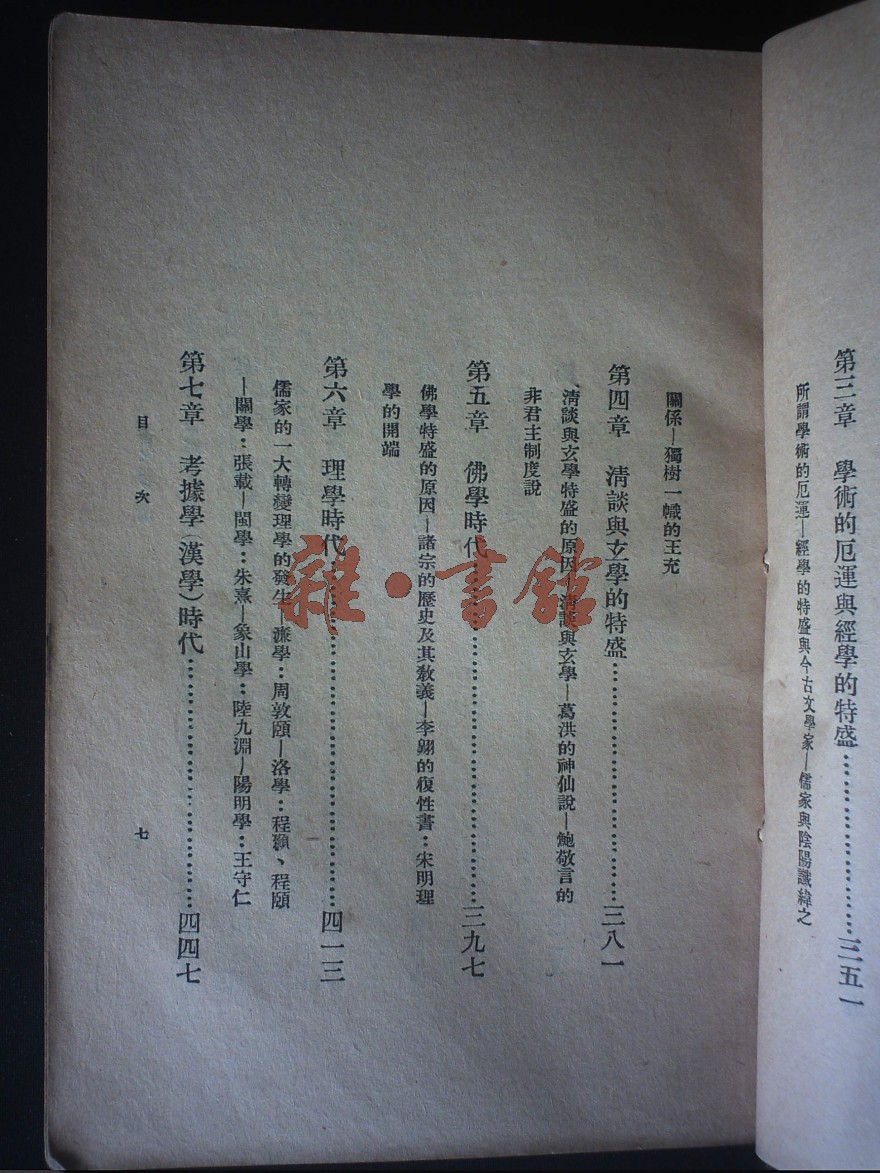 第三章　學術的厄運與經學的特盛……………………三五一
所謂學術的厄運—經學的特盛與今古文學家—儒家與陰陽讖緯之
關係—獨樹一幟的王充
第四章　清談與玄學的特盛……………………三八一
清談與玄學特盛的原因—清談與玄學—葛洪的神仙說—鮑敬言的
非君主制度說
第五章　佛學時代……………………三九七
佛學特盛的原因—諸宗的歷史及其教義—李翱的復性書：宋明理
學的開端
第六章　理學時代……………………四一三
儒家的一大轉變理學的發生—濂學：周敦頤—洛學：程顥、程頤
—關學：張載—閩學：朱熹—象山學：陸九淵—陽明學：王守仁
第七章　考據學（漢學）時代……………………四四七
目次
七
雜·書館